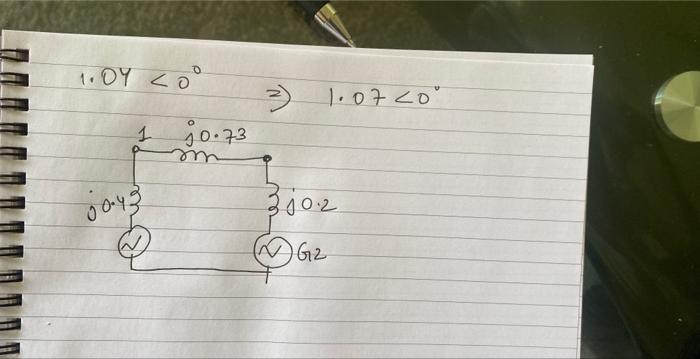 1.04 <0° ⇒ 1.07 <0°
1 j0.73
j0.4 j0.2
G2